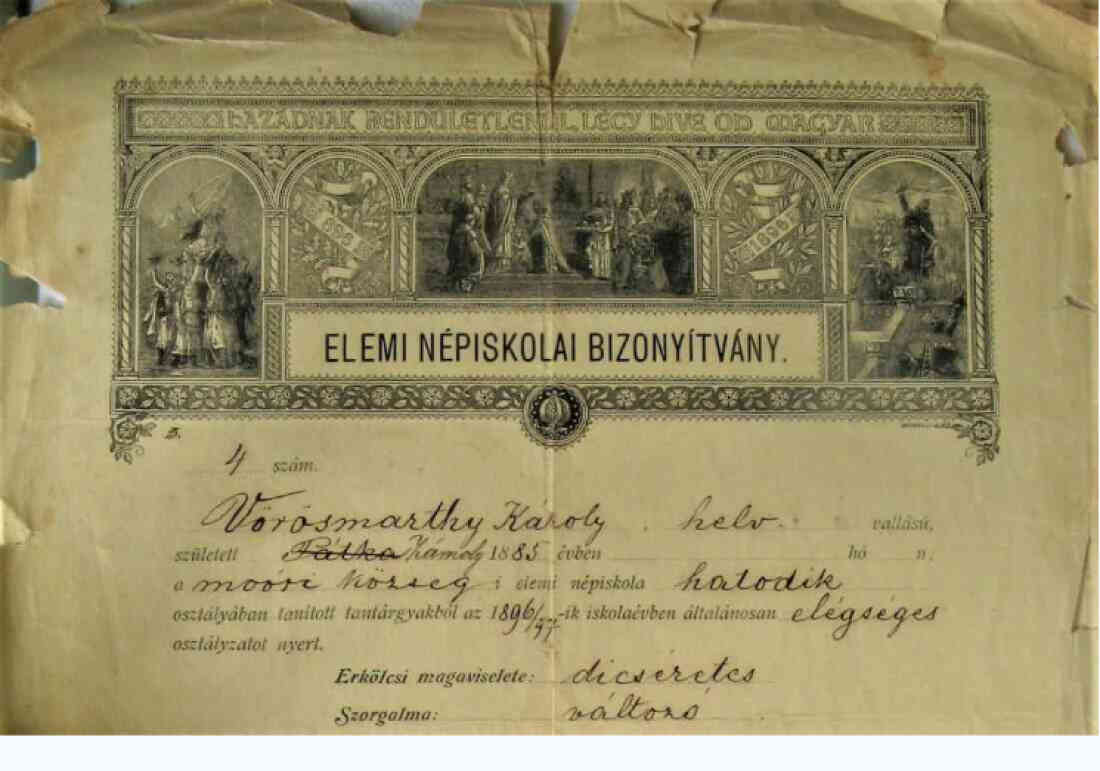 HAZÁDNAK RENDÜLETLENÜL LÉGY HIVE OH MAGYAR
896 1896
ELEMI NÉPISKOLAI BIZONYÍTVÁNY.
4 szám.
Vörösmarthy Károly helv. vallású,
született Pátka Zámoly 1885 évben hó n.
a moóri község i elemi népiskola hatodik
osztályában tanított tantárgyakból az 1896/97-ik iskolaévben általánosan elégséges
osztályzatot nyert.
Erkölcsi magaviselete: dicséretes
Szorgalma: változó